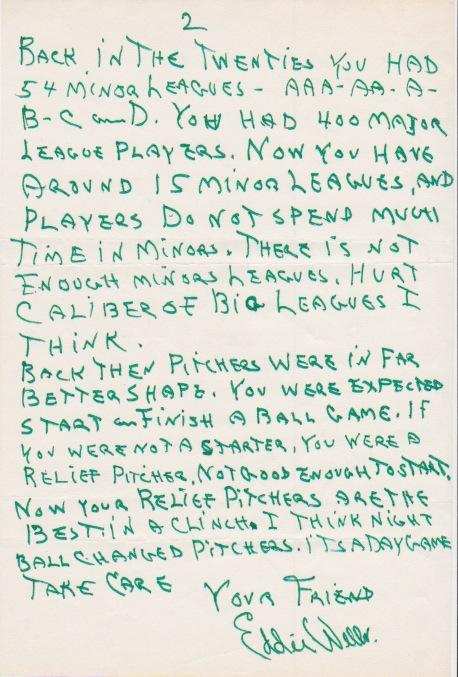 2
BACK IN THE TWENTIES YOU HAD
54 MINOR LEAGUES - AAA-AA-A-
B-C and D. YOU HAD 400 MAJOR
LEAGUE PLAYERS. NOW YOU HAVE
AROUND 15 MINOR LEAGUES, AND
PLAYERS DO NOT SPEND MUCH
TIME IN MINORS. THERE IS NOT
ENOUGH MINORS LEAGUES. HURT
CALIBER OF BIG LEAGUES I
THINK.
BACK THEN PITCHERS WERE IN FAR
BETTER SHAPE. YOU WERE EXPECTED
START an FINISH A BALL GAME. IF
YOU WERE NOT A STARTER, YOU WERE A
RELIEF PITCHER, NOT GOOD ENOUGH TO START.
NOW YOUR RELIEF PITCHERS ARE THE
BEST. IN A CLINCH. I THINK NIGHT
BALL CHANGED PITCHERS. ITS A DAY GAME
TAKE CARE YOUR FRIEND
Eddie Wells.